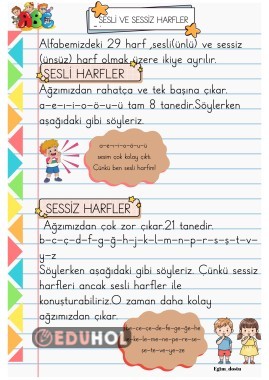 ABC
SESLİ VE SESSİZ HARFLER
Alfabemizdeki 29 harf ,sesli(ünlü) ve sessiz
(ünsüz) harf olmak üzere ikiye ayrılır.
SESLİ HARFLER
Ağzımızdan rahatça ve tek başına çıkar.
a-e-ı-i-o-ö-u-ü tam 8 tanedir.Söylerken
aşağıdaki gibi söyleriz.
a-e-ı-i-o-ö-u-ü
sesim çok kolay çıktı
Çünkü ben sesli harfim!
SESSİZ HARFLER
Ağzımızdan çok zor çıkar.21 tanedir.
b-c-ç-d-f-g-ğ-h-j-k-l-m-n-p-r-s-ş-t-v-
y-z
Söylerken aşağıdaki gibi söyleriz. Çünkü sessiz
harfleri ancak sesli harfler ile
konuşturabiliriz.O zaman daha kolay
ağzımızdan çıkar.
EDUHOL
be-ce-çe-de-fe-ge-ğe-he
le-me-ne-pe-re-se-
şe-te-ve-ye-ze
Eğitim dostu